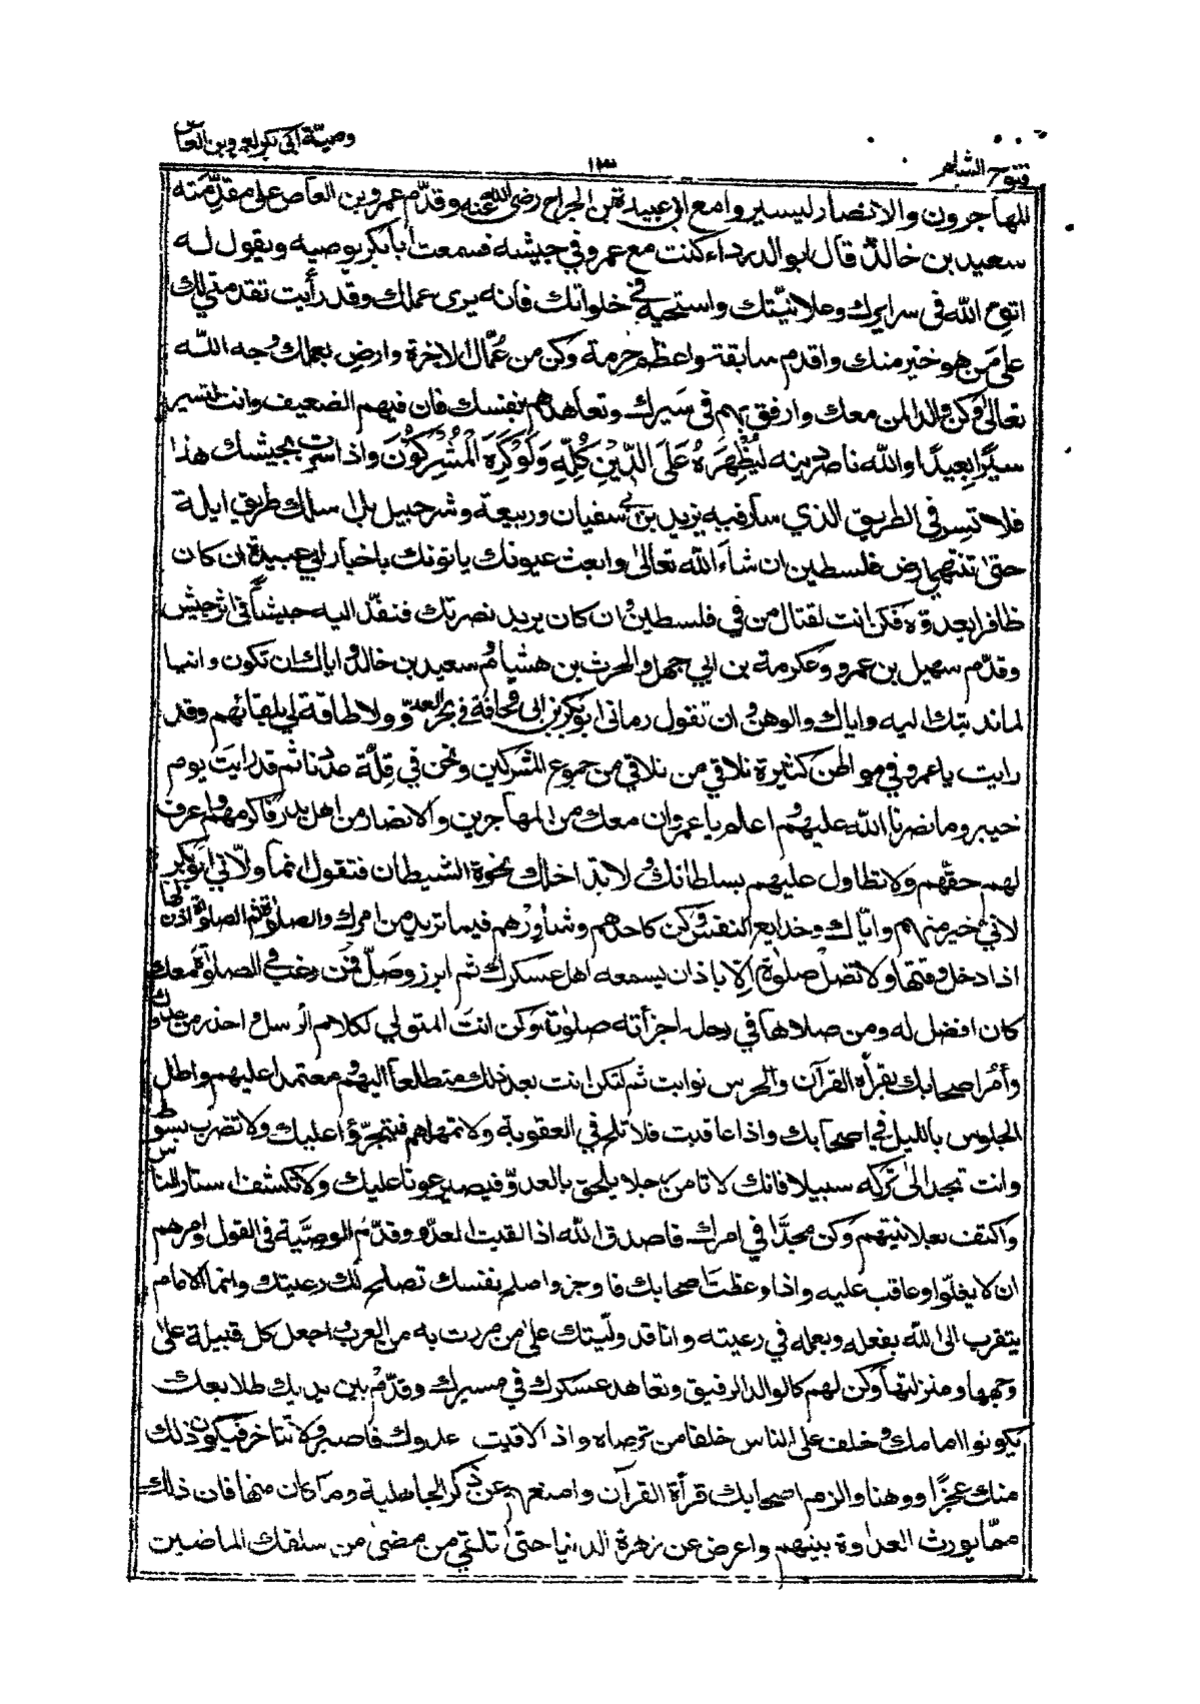 فتوح الشام
١٣
وصيّة ابي بكر لعمرو بن العاص
للمهاجرون والانصار ليسيروا مع ابي عبيدة بن الجراح رضى الله عنه وقدّم عمرو بن العاص على مقدّمته
سعيد بن خالد قال ابو الدرداء كنت مع عمرو في جيشه فسمعت ابا بكر يوصيه ويقول له
اتق الله فى سرايرك وعلانيّتك واستحيه في خلواتك فانه يرى عملك وقد رأيت تقدمتي لك
على من هو خير منك واقدم سابقة واعظم حرمة وكن من عمّال الاخرة وارض بعملك وجه الله
تعالى وكن والدا لمن معك وارفق بهم فى سيرك وتعاهدهم بنفسك فان فيهم الضعيف وانت تسير
سيرًا بعيدًا والله ناصر دينه لِيُظْهِرَهُ عَلَى الدِّيْنِ كُلِّهٖ وَلَوْ كَرِهَ الْمُشْرِكُوْنَ واذا سرت بجيشك هذا
فلا تسر في الطريق الذي سار فيه يزيد بن ابي سفيان وربيعة وشرحبيل بل اسلك طريق ايلة
حتى تنتهي ارض فلسطين ان شاء الله تعالى وابعث عيونك ياتونك باخبار ابي عبيدة ان كان
ظافرا بعدوّه فكن انت لقتال من في فلسطين وان كان يريد نصرتك فنفّذ اليه جيشاً في اثر جيش
وقدّم سهيل بن عمرو وعكرمة بن ابي جهل والحرث بن هشام وسعيد بن خالد واياك ان تكون وانيا
لما ندبتك اليه واياك والوهن وان تقول رمانى ابو بكر بن ابى قحافة في بحر العدوّ ولا طاقة لي بلقائهم وقد
رايت يا عمرو في مواطن كثيرة نلاقي من نلاقي من جموع المشركين ونحن في قلّة عددنا ثم قد رايت يوم
خيبر وما نصرنا الله عليهم واعلم يا عمرو ان معك من المهاجرين والانصار من اهل بدر فاكرمهم واعرف
لهم حقّهم ولا تطاول عليهم بسلطانك ولا تداخلك نخوة الشيطان فتقول انما ولّاني ابو بكر
لاني خير منهم وايّاك وخدايع النفس وكن كاحدهم وشاورهم فيما تريد من امرك والصلوة ثم الصلوة اذن لها
اذا دخل وقتها ولا تصل صلوة الا باذان يسمعه اهل عسكرك ثم ابرز وصلّ فمن رغب في الصلوة معك
كان افضل له ومن صلاها في رحله اجزأته صلوته وكن انت المتولي لكلام الرسل واحذر من عدوك
وأمُر اصحابك بقرأة القرآن والحرس نوابت ثم لتكن انت بعد ذلك متطلعاً اليهم ومعتمدا عليهم واطل
الجلوس بالليل في اصحابك واذا عاقبت فلا تلح في العقوبة ولا تمهلهم فتتجرّؤا عليك ولا تضرب بسوط
وانت تجد الى تركه سبيلا فانك لا تامن رجلا يلحق بالعدوّ فيصير عونا عليك ولا تكشف استار الناس
واكتف بعلانيتهم وكن مجدًّا في امرك فاصدق الله اذا لقيت العدو وقدّم الوصيّة فى القول وأمرهم
ان لا يغلّوا وعاقب عليه واذا وعظت اصحابك فاوجز واصلح نفسك تصلح لك رعيتك وانما الامام
يتقرب الى الله بفعله وبعمله في رعيته وانا قد ولّيتك على من مررت به من العرب واجعل كل قبيلة على
وجهها ومنزلتها وكن لهم كالوالد الرفيق وتعاهد عسكرك في مسيرك وقدّم بين يديك طلايعك
يكونوا امامك وخلف على الناس خلفا من ترضاه واذا لاقيت عدوك فاصبر ولا تتاخر فيكون ذلك
منك عجزًا ووهنا والزم اصحابك قرأة القرآن وامنعهم عن ذكر الجاهلية وما كان منها فان ذلك
ممّا يورث العداوة بينهم واعرض عن زهرة الدنيا حتى تلتقي من مضى من سلفك الماضين